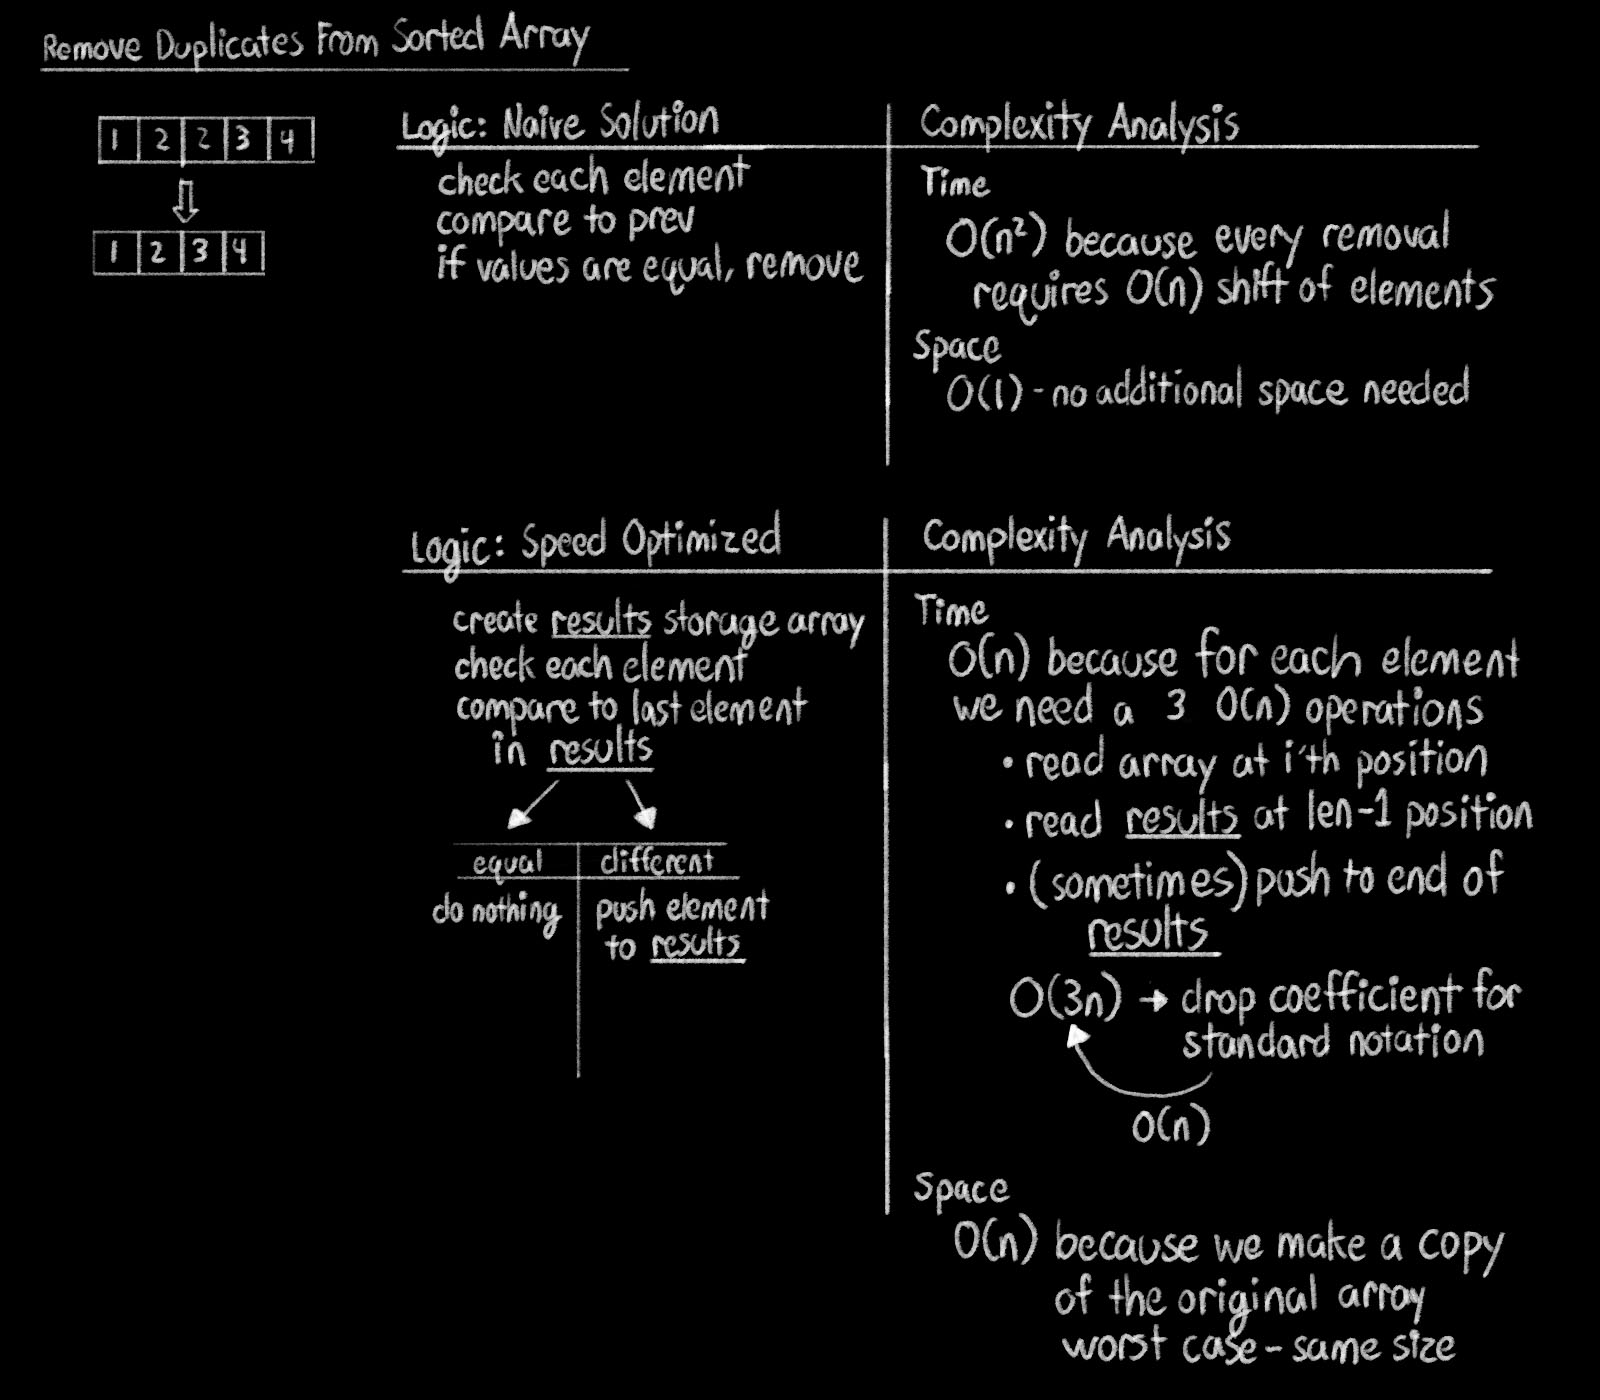 Remove Duplicates From Sorted Array
1 2 2 3 4
1 2 3 4
Logic: Naive Solution
check each element
compare to prev
if values are equal, remove
Complexity Analysis
Time
O(n²) because every removal
requires O(n) shift of elements
Space
O(1) - no additional space needed
Logic: Speed Optimized
create results storage array
check each element
compare to last element
in results
equal
different
do nothing
push element
to results
Complexity Analysis
Time
O(n) because for each element
we need a 3 O(n) operations
• read array at i'th position
• read results at len-1 position
• (sometimes) push to end of
results
O(3n) → drop coefficient for
standard notation
O(n)
Space
O(n) because we make a copy
of the original array
worst case - same size